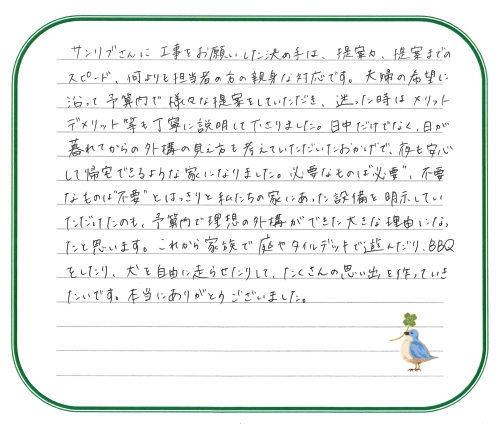 サンリブさんに工事をお願いした決め手は、提案力、提案までの
スピード、何よりも担当者の方の親身な対応です。夫婦の希望に
沿って予算内で様々な提案をしていただき、迷った時はメリット
デメリット等も丁寧に説明して下さりました。日中だけでなく、日が
暮れてからの外構の見え方も考えていただいたおかげで、夜も安心
して帰宅できるような家になりました。必要なものは"必要"、不要
なものは"不要"とはっきりと私たちの家にあった設備を明示してい
ただけたのも、予算内で理想の外構ができた大きな理由になっ
たと思います。これから家族で庭やタイルデッドで遊んだり、BBQ
をしたり、犬を自由に走らせたりして、たくさんの思い出を作っていき
たいです。本当にありがとうございました。